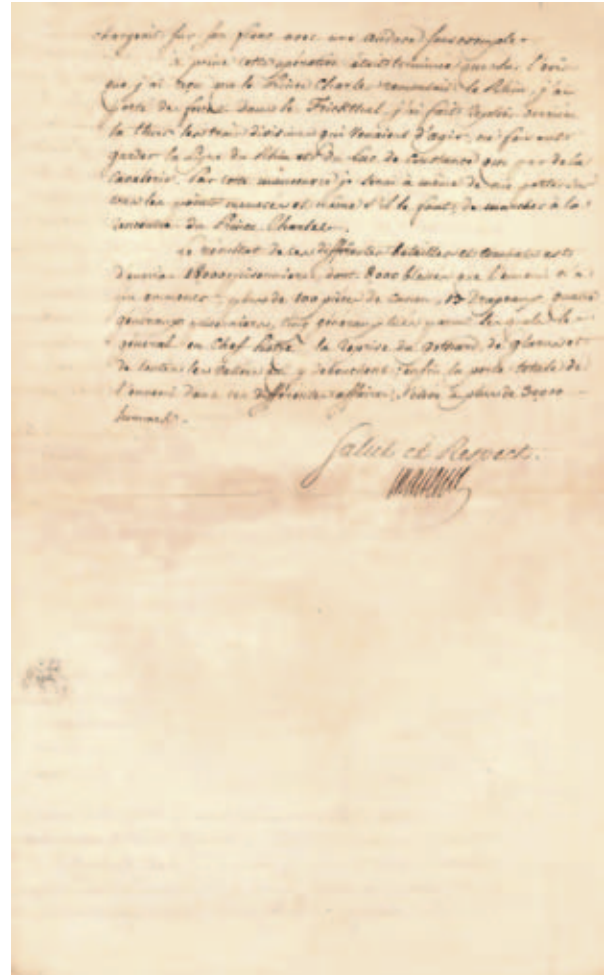 chargeait sur son flanc avec une audace sans exemple.
à peine cette opération était terminée que sur l'avis
que j'ai reçu que le Prince Charles remontait le Rhin, j'ai
porté de forces dans le Frickthal, j'ai fait
la Thur les trois divisions qui venaient d'agir, ne faisant
garder la ligne du Rhin et du Lac de Constance que par de la
Cavalerie. Par cette manœuvre je serai à même de me porter
les points menacés et même s'il le faut, de marcher à la
rencontre du Prince Charles.
Le résultat de ces différentes batailles et combats est
d'environ 18000 prisonniers, dont 8000 blessés que l'ennemi n'a
pu emmener, plus de 100 pièces de Canon, 13 Drapeaux, quatre
généraux prisonniers, cinq généraux tués parmi lesquels le
général en Chef la reprise du Gothard, de Glaris et
de toutes les vallées qui y débouchent; enfin la perte totale de
l'ennemi dans ces différentes affaires, s'élève à plus de 30000
hommes.
Salut et Respect.
Massena